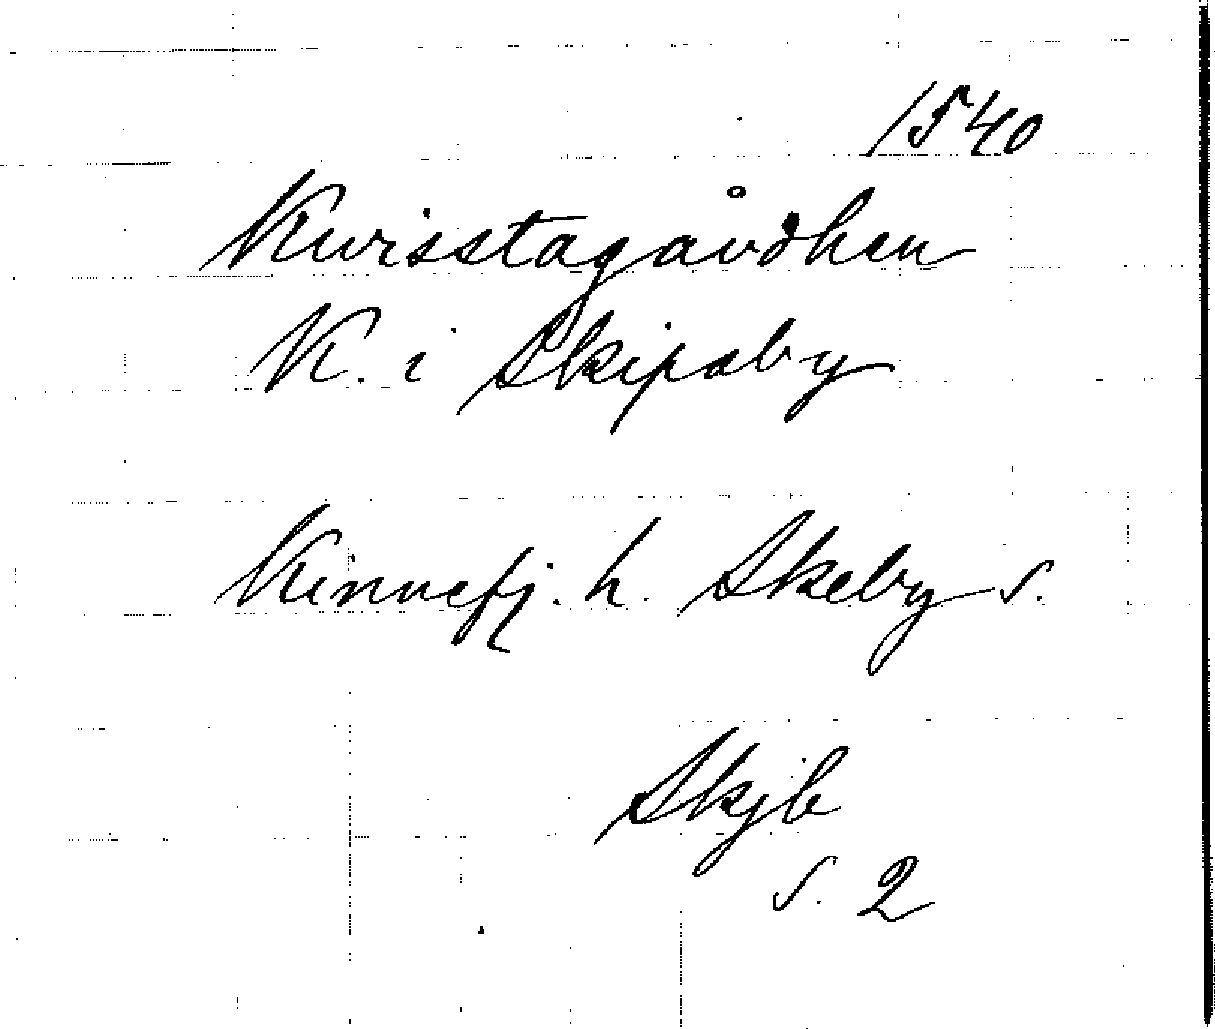 1540
Kwisstagårdhen
K. i Skipaby
Kinnefj. h. Skeby s.
Skjb
s. 2